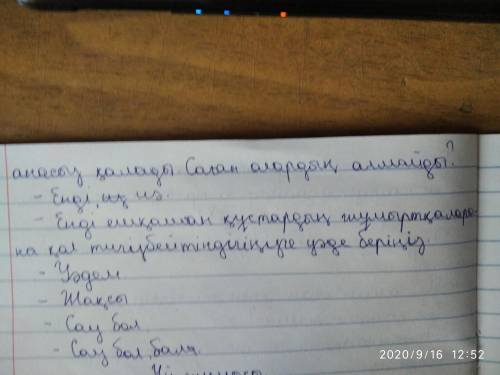 анасыз қалады Саған олардың алмайды?
- Енді, иә.
- Енді ешқашан құстардың жұмыртқалары-
на қол тигізбейтіндігіңізге уәде беріңіз
- Уәдем
- Жақсы
- Сау бол
- Сау бол, бала.
2020/9/16 12:52